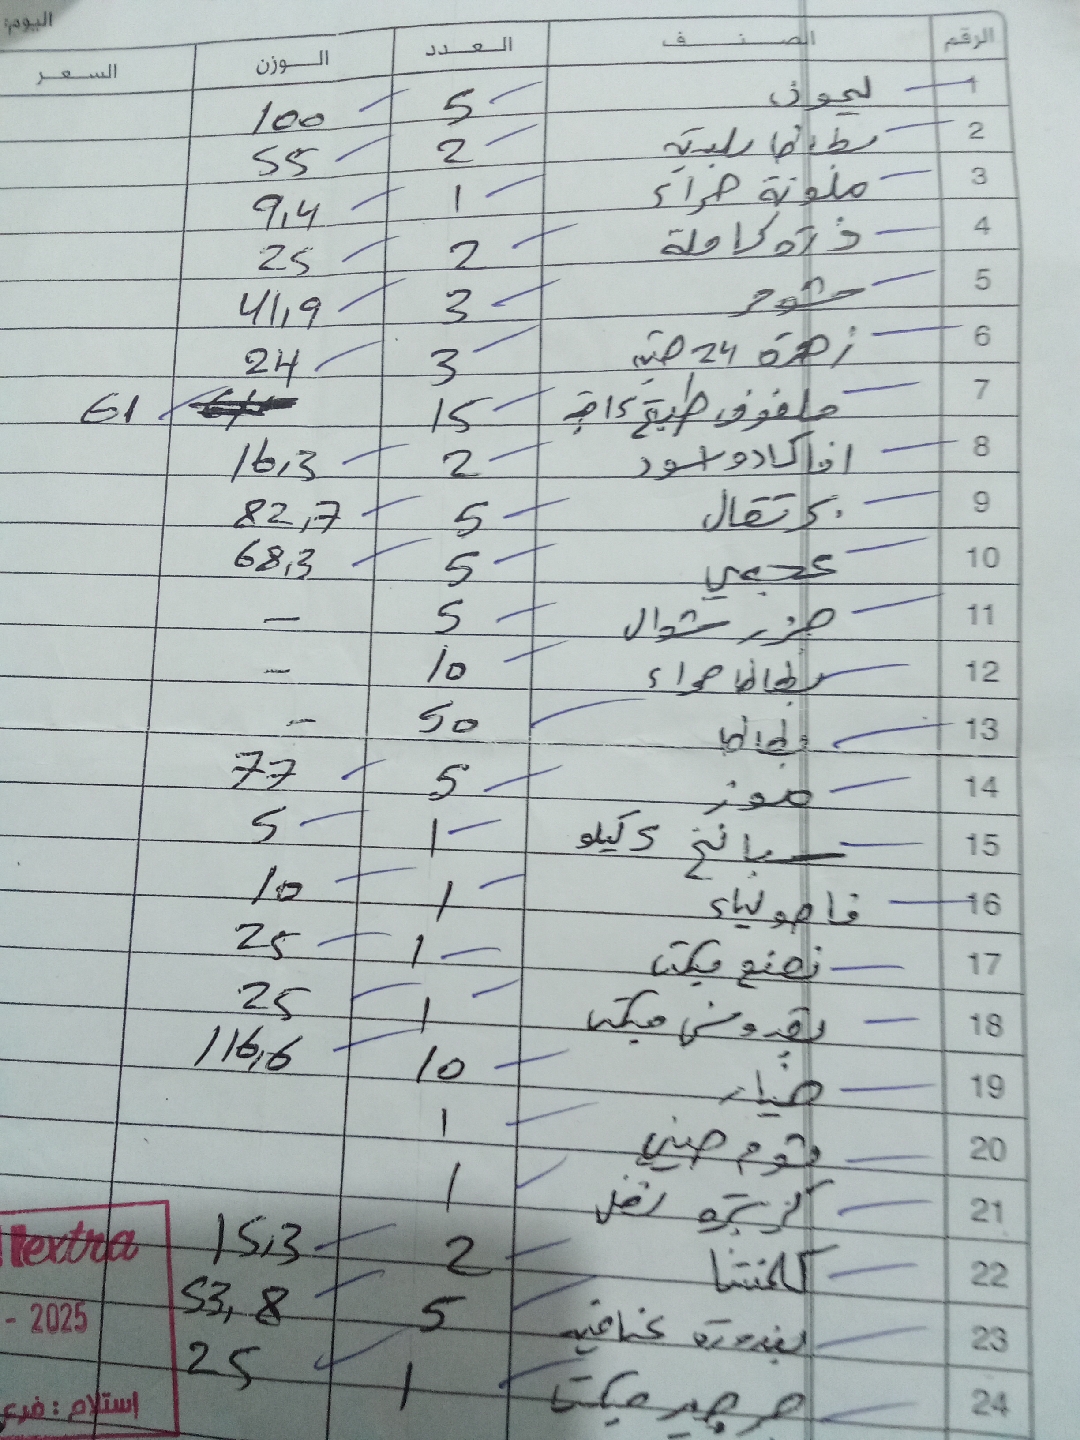 اليوم:
الرقم الصنف العدد الوزن السعر
1 ليمون 5 100
2 بطاطا بلدية 2 55
3 ملونة حمراء 1 9,4
4 ذرة كاملة 2 25
5 3 41,9
6 زهرة 24 حبة 3 24
7 ملفوف طبيخ 15 61
8 افاكادو اسود 2 16,3
9 برتقال 5 82,7
10 عجمي 5 68,3
11 جزر شوال 5 -
12 بطاطا حمراء 10 -
13 بطاطا 50 -
14 موز 5 77
15 سبانخ 5 كيلو 1 5
16 فاصولياء 1 10
17 نعنع 1 25
18 بقدونس 1 25
19 خيار 10 116,6
20 ثوم صيني 1
21 كزبرة 1
22 كلمنتينا 2 15,3
23 بندورة عناقيد 5 53,8
24 جرجير 1 25
extra
- 2025
استلام : فرع